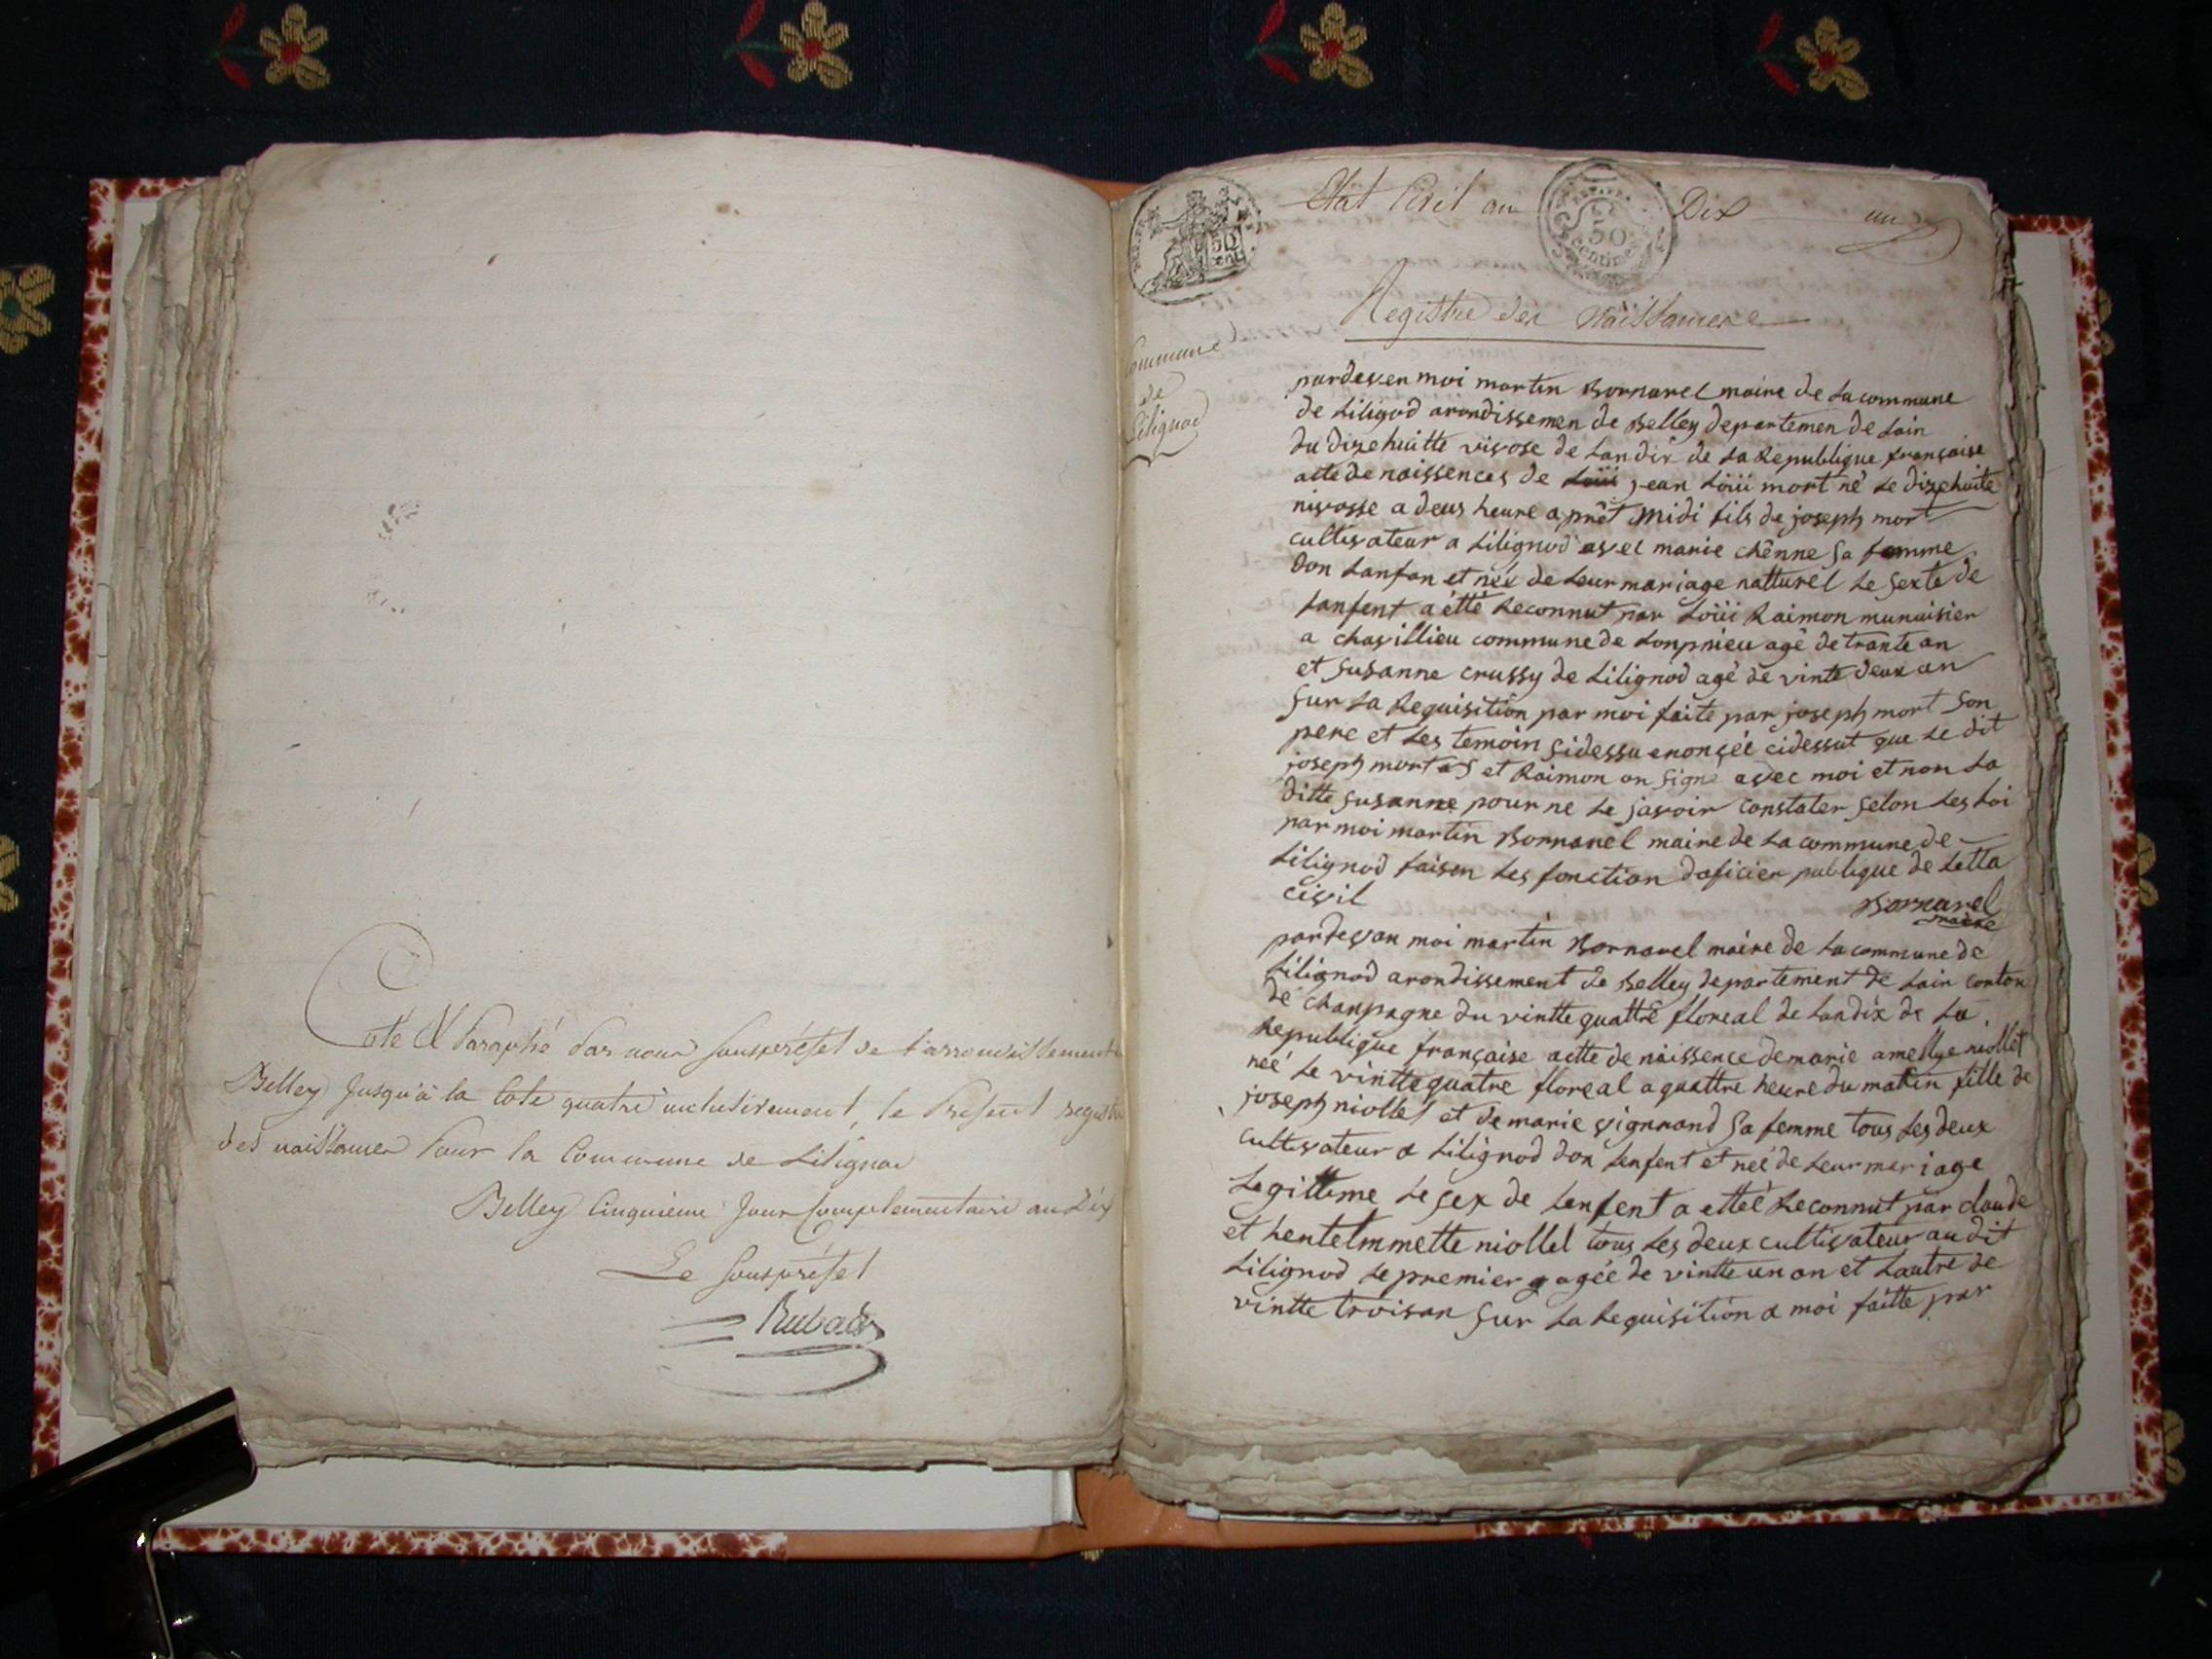 Coté & Paraphé Par nous souspréfet de l'arrondissement
Belley Jusqu'à la Cote quatre inclusivement, le Présent registre
des naissances Pour la Commune de Lilignod
Belley Cinquieme Jour Complementaire an Dix
Le souspréfet
Rubat
Etat Civil an Dix
un
50
cent
50
Centimes
Registre des Naissances
Commune
de
Lilignod
pardeven moi martin Bornarel maire de la commune
de Liligod arondissemen de Belley departemen de Lain
du dixehuitte nivose de Landix de La Republique française
atte de naissences de Loüii jean Loüii mort né Le dizehuite
nivosse a deus heure a prêt midi fils de joseph mort
cultivateur a Lilignod avec marie chênne sa femme
Don Lanfan et née de Leur mariage natturel Le sexte de
Lanfent a étté Reconnut par Loüii Raimon munuisier
a chavillieu commune de Lonpnieu agé de trante an
et Susanne crussy de Lilignod agé de vinte deux an
sur La Requisition par moi faite par joseph mort son
pere et Les temoin sidessu enonsée cidessut que Le dit
joseph mort et Raimon on signe avec moi et non La
ditte susanne pour ne Le savoir constater selon Les Loi
par moi martin Bornarel maire de La commune de
Lilignod faisen Les fonction doficier publique de Letta
civil
Bornarel
maire
pardevan moi martin Bornarel maire de La commune de
Lilignod arondissement de Belley departement de Lain conton
de chanpagne du vintte quattre floreal de Landix de La
Republique française actte de naissence de marie niollet
néé Le vintte quatre floreal a quattre heure du matin fille de
joseph niollet et de marie vignand sa femme tous Les deux
cultivateur a Lilignod don Lenfent et neé de Leur mariage
Legittime Le sex de Lenfent a etteé Reconnut par claude
et niollet tous Les deux cultivateur au dit
Lilignod Le premier agée de vintte un an et Lautre de
vintte trois an sur La Requisition a moi faitte par